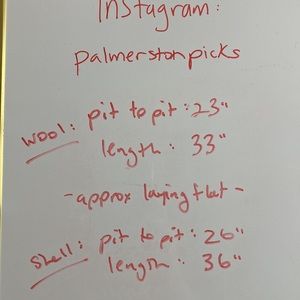 Instagram:
palmerstonpicks
wool: pit to pit: 23"
length: 33"
-approx laying flat-
Shell: pit to pit: 26"
length: 36"